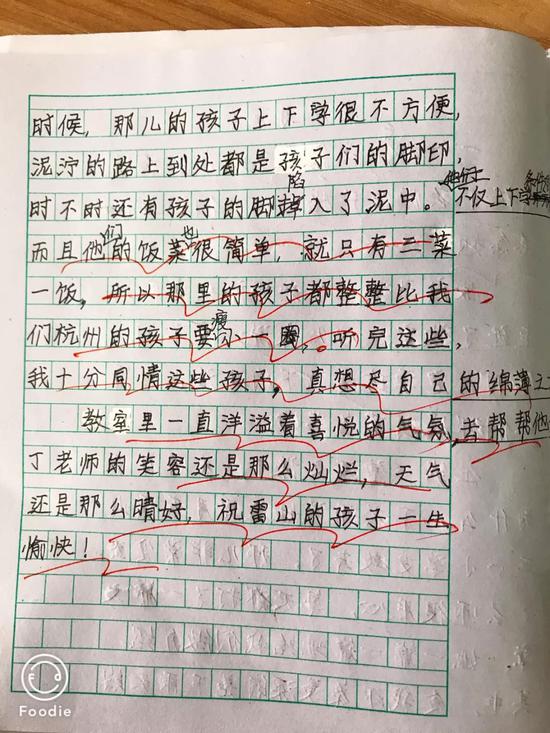 时候，那儿的孩子上下学很不方便，
泥泞的路上到处都是孩子们的脚印，
时不时还有孩子的脚陷入了泥中。不仅上下学
而且他们的饭菜也很简单，就只有三菜
一饭，所以那里的孩子都整整比我
们杭州的孩子要瘦一圈，听完这些，
我十分同情这些孩子，真想尽自己的绵薄之
教室里一直洋溢着喜悦的气氛，去帮帮他
丁老师的笑容还是那么灿烂，天气
还是那么晴好，祝雷山的孩子一生
愉快！
Foodie